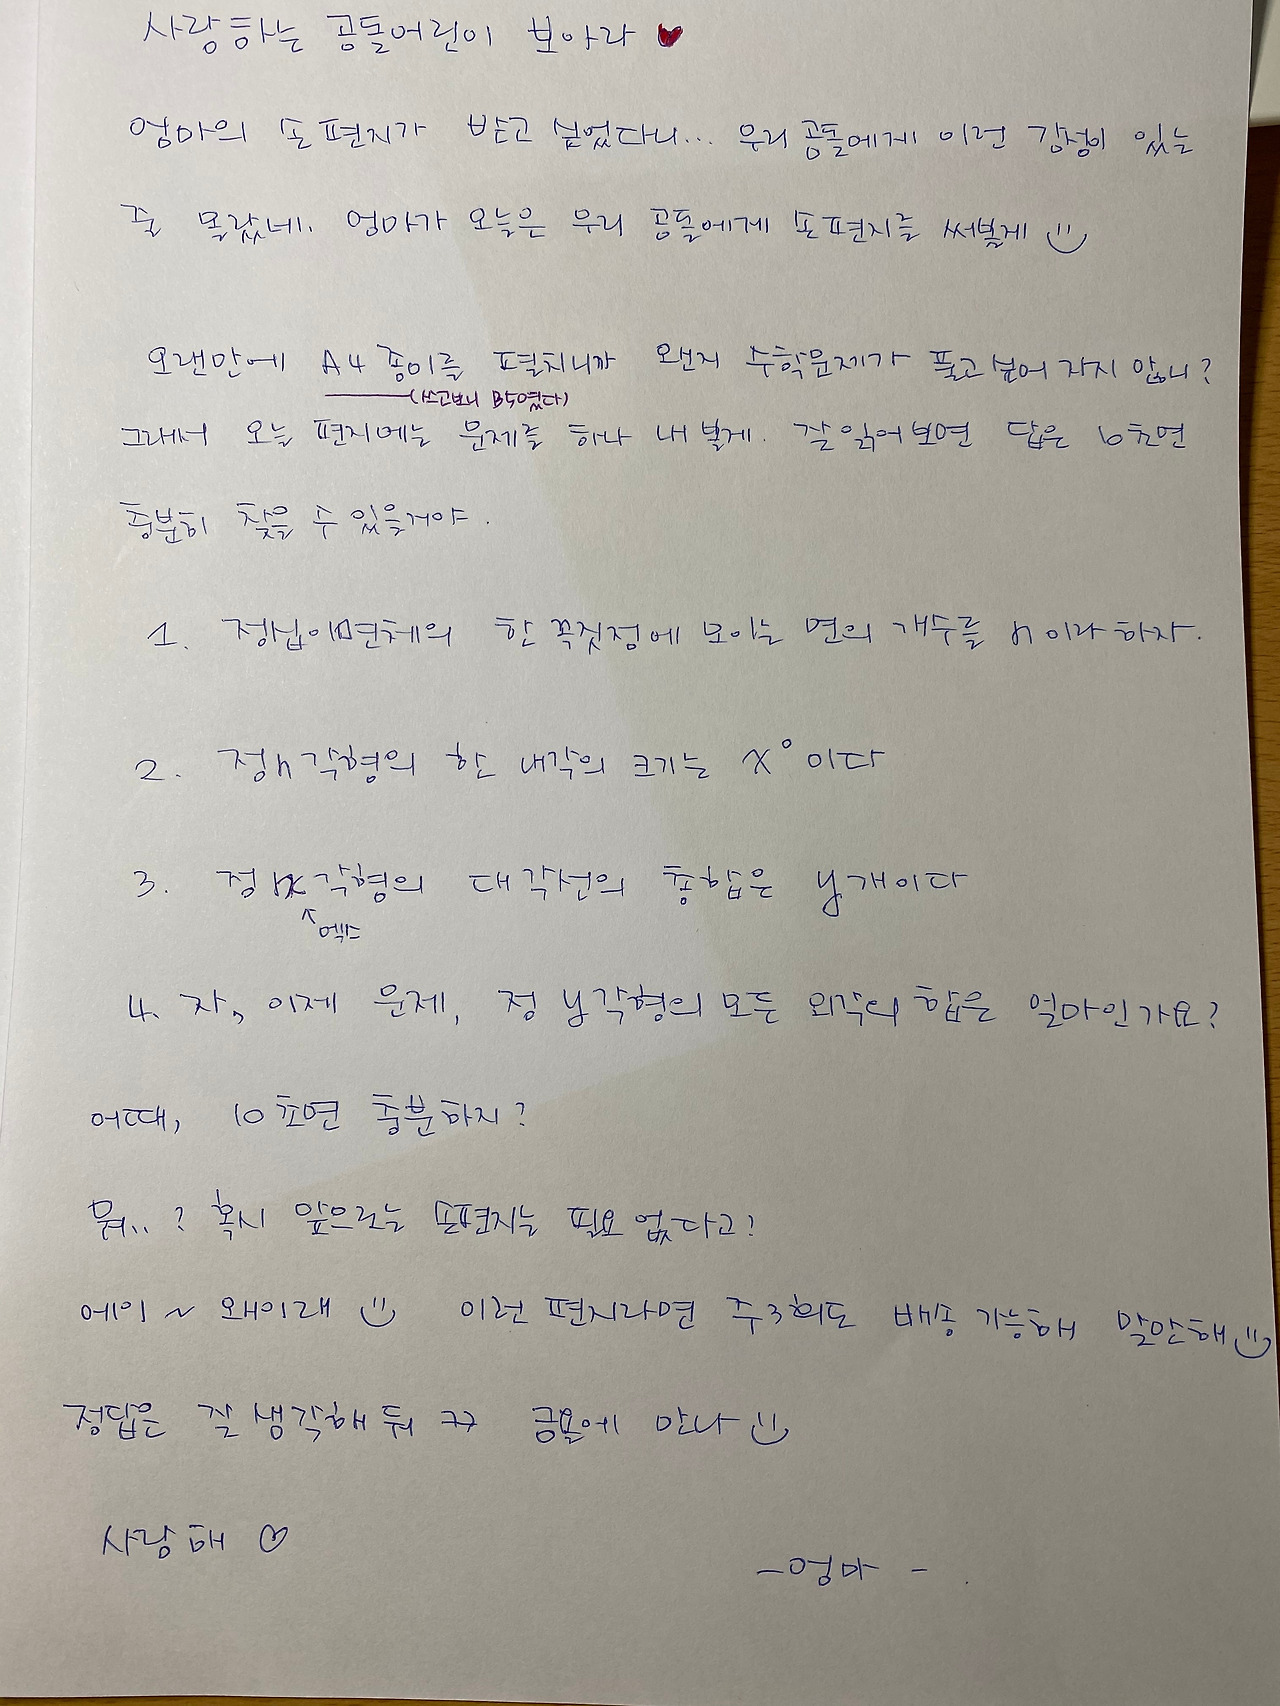 사랑하는 공돌어린이 보아라 ♥
엄마의 손편지가 받고 싶었다니... 우리 공돌에게 이런 감성이 있는
줄 몰랐네. 엄마가 오늘은 우리 공돌에게 손편지를 써볼게
오랜만에 A4 종이를 펼치니까 왠지 수학문제가 풀고 싶어 지지 않니?
(쓰고보니 B5였다)
그래서 오늘 편지에는 문제를 하나 내 볼게. 잘 읽어보면 답은 10초면
충분히 찾을 수 있을거야.
1. 정십이면체의 한 꼭짓점에 모이는 면의 개수를 n이라 하자.
2. 정n각형의 한 내각의 크기는 x°이다
3. 정x각형의 대각선의 총합은 y개이다
↖엑스
4. 자, 이제 문제, 정 y각형의 모든 외각의 합은 얼마인가요?
어때, 10초면 충분하지?
뭐..? 혹시 앞으로는 손편지는 필요 없다고?
에이~ 왜이래 이런 편지라면 주3회도 배송 가능해 말만해
정답은 잘 생각해 둬 ㅋㅋ 금욜에 만나
사랑해 ♡
-엄마-